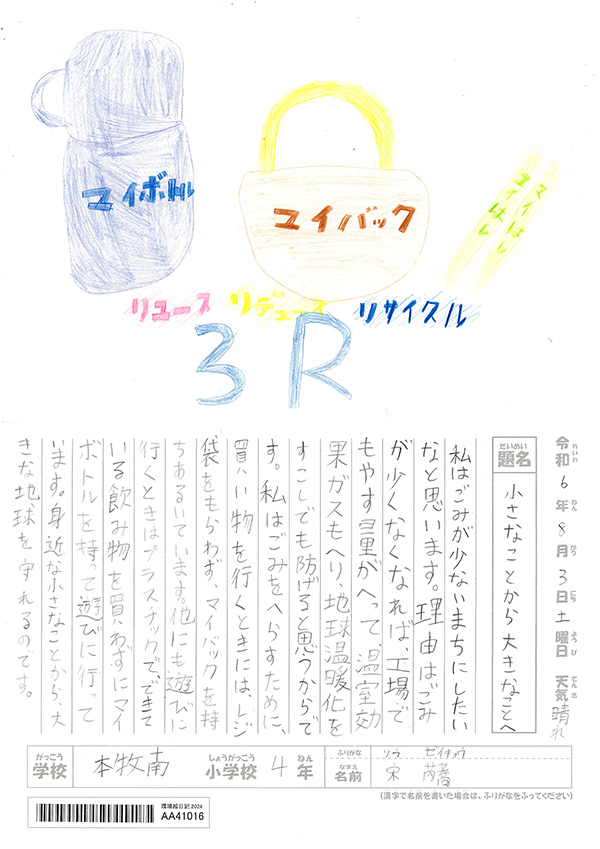 マイボトル
マイバック
マイはし
マイはし
リユース リデュース リサイクル
3R
令和6年8月3日土曜日 天気 晴れ
れいわ ねん がつ にち ようび てんき
だいめい
題名 小さなことから大きなことへ
私はごみが少ないまちにしたい
なと思います。理由はごみ
が少なくなれば、工場で
もやす量がへって、温室効
果ガスもへり、地球温暖化を
すこしでも防げると思うからで
す。私はごみをへらすために、
買い物を行くときには、レジ
袋をもらわず、マイバックを持
ちあるいています。他にも遊びに
行くときはプラスチックでできて
いる飲み物を買わずにマイ
ボトルを持って遊びに行って
います。身近な小さなことから、大
きな地球を守れるのです。
がっこう しょうがっこう ねん ふりがな ソウ ゼイキョウ
学校 本牧南 小学校 4年 なまえ 名前 宋 芮蕎
(漢字で名前を書いた場合は、ふりがなをふってください)
環境絵日記2024
AA41016